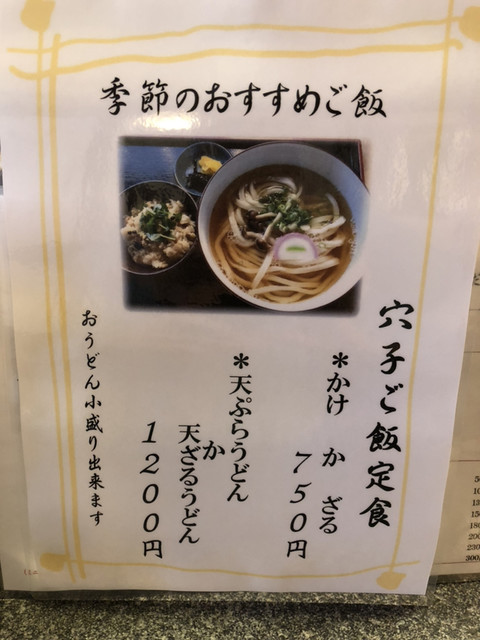 季節のおすすめご飯
穴子ご飯定食
*かけ か ざる
750円
*天ぷらうどん
か
天ざるうどん
1200円
おうどん小盛り出来ます